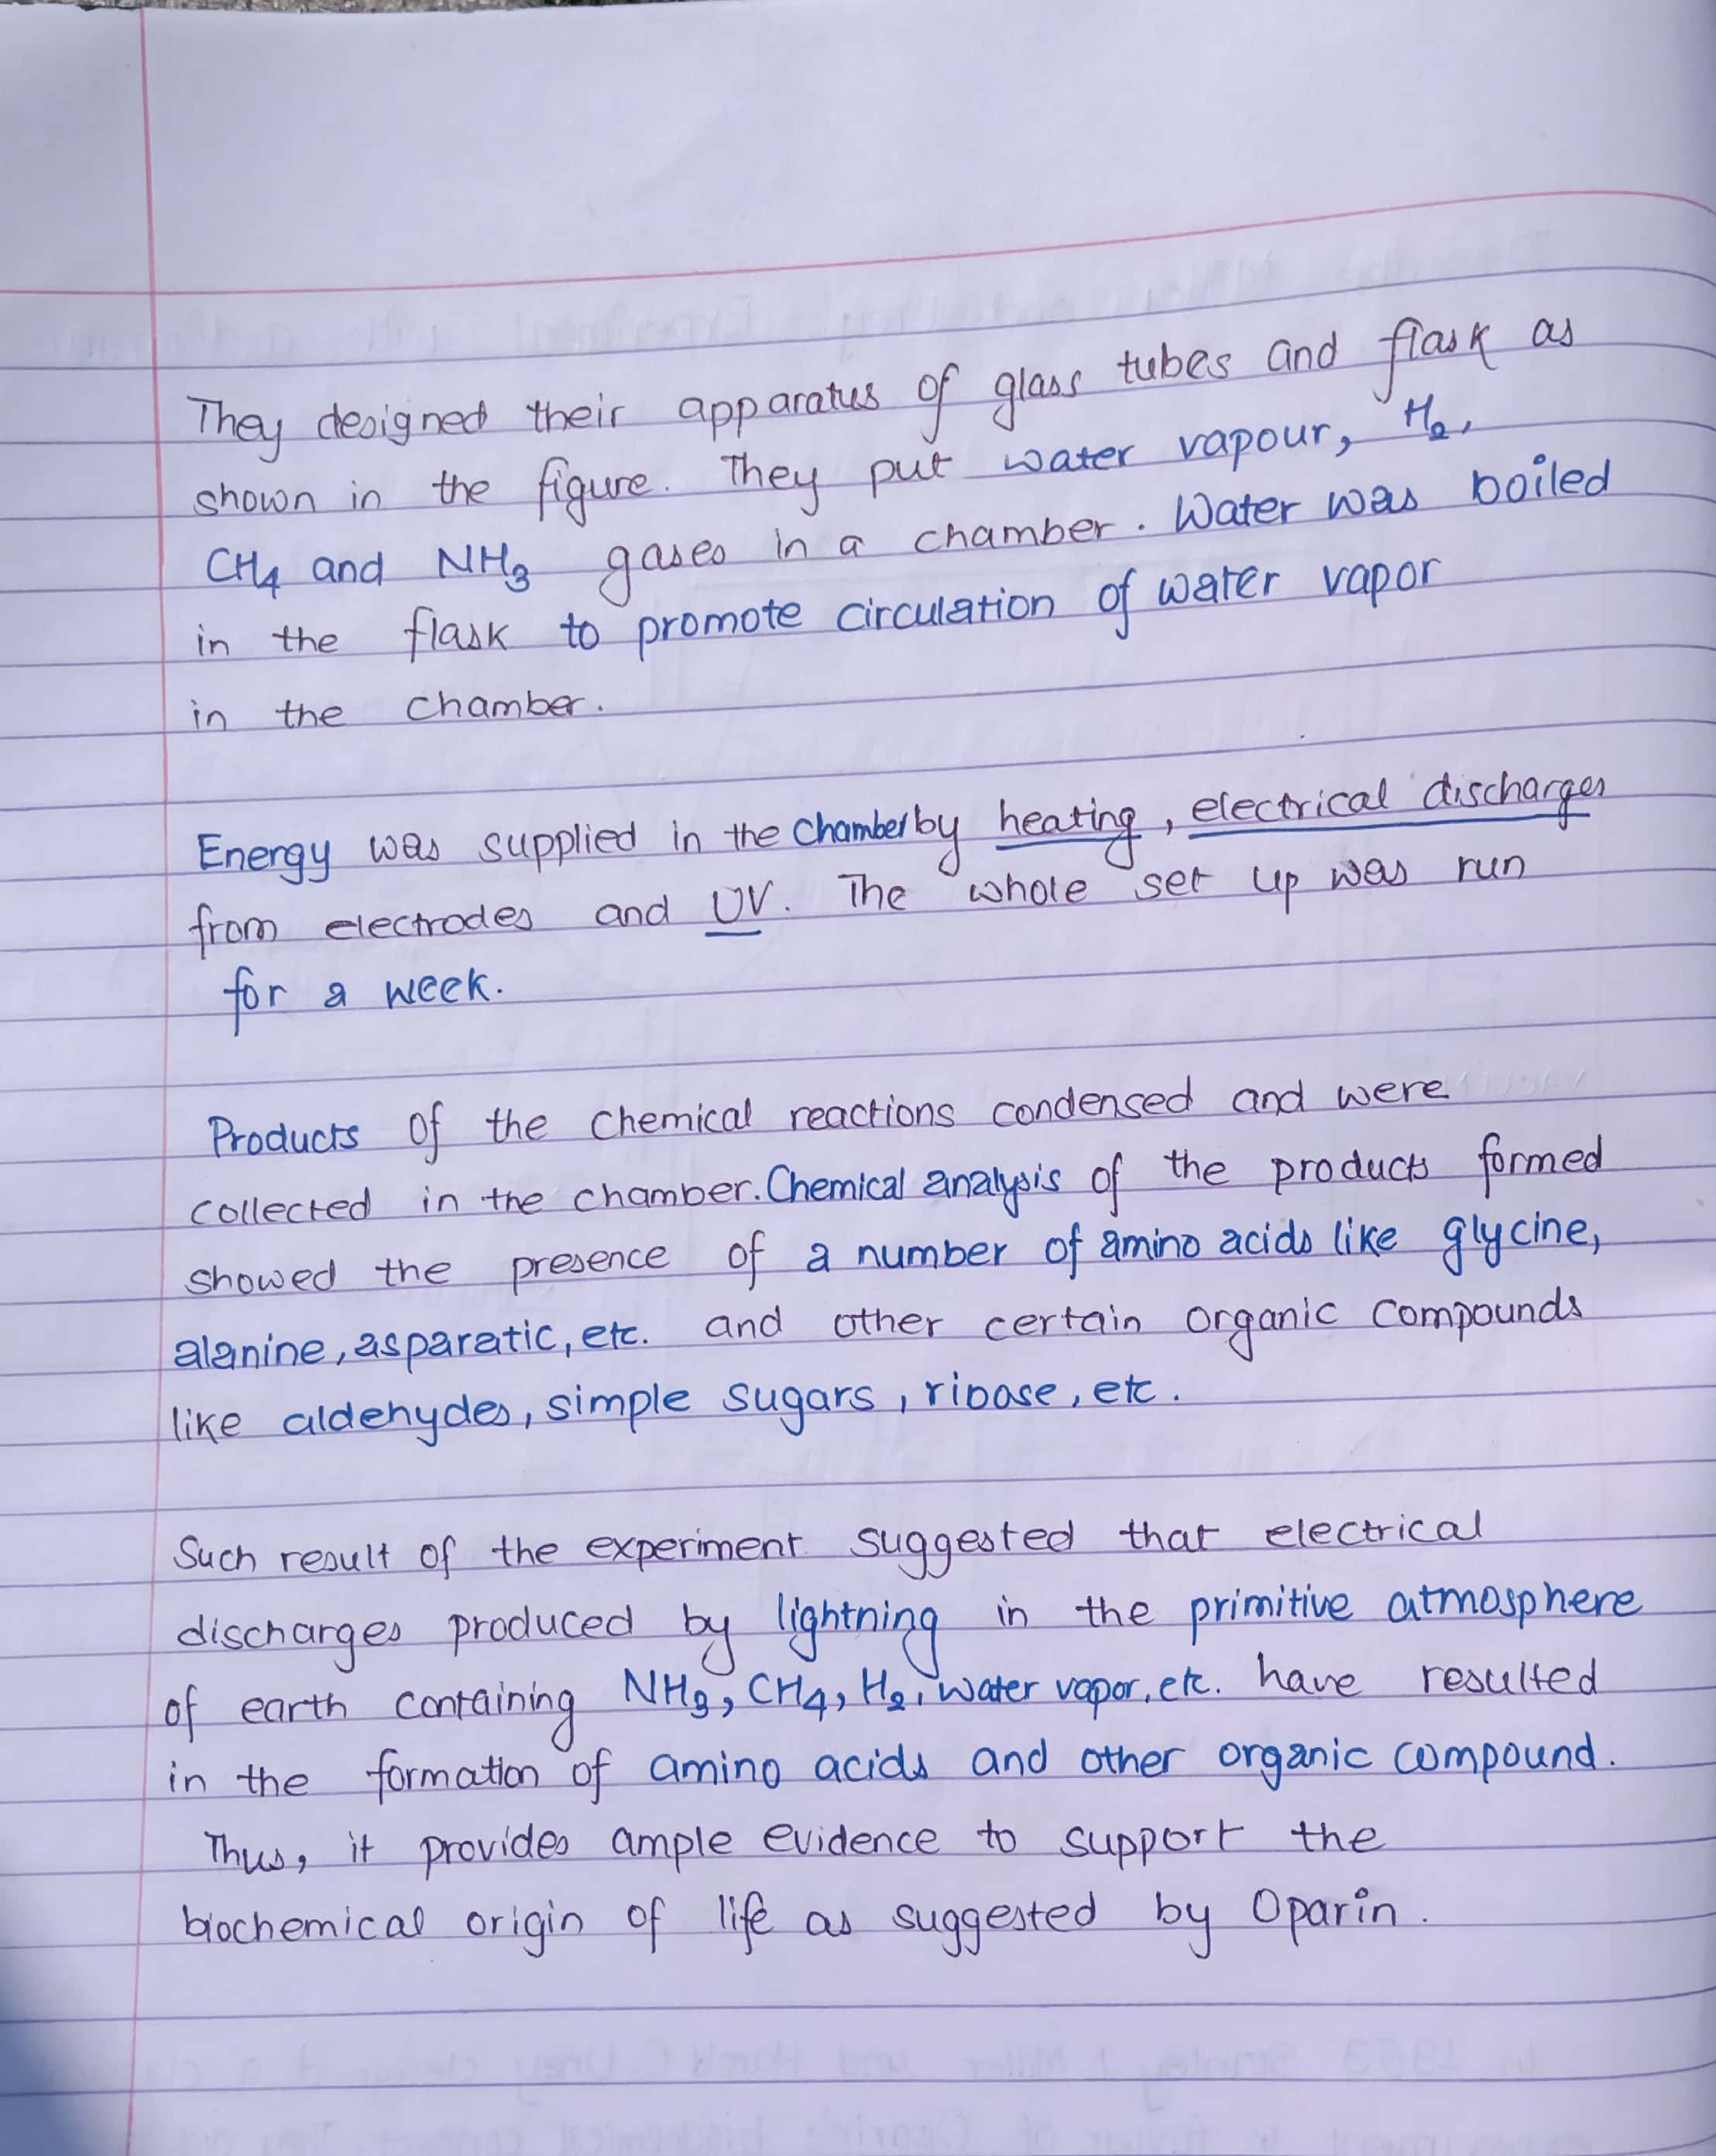 They designed their apparatus of glass tubes and flask as
shown in the figure. They put water vapour, H₂,
CH₄ and NH₃ gases in a chamber. Water was boiled
in the flask to promote circulation of water vapor
in the chamber.
Energy was supplied in the chamber by heating, electrical discharges
from electrodes and UV. The whole set up was run
for a week.
Products of the chemical reactions condensed and were
collected in the chamber. Chemical analysis of the products formed
showed the presence of a number of amino acids like glycine,
alanine, asparatic, etc. and other certain organic compounds
like aldehydes, simple sugars, ribose, etc.
Such result of the experiment suggested that electrical
discharges produced by lightning in the primitive atmosphere
of earth containing NH₃, CH₄, H₂, water vapor, etc. have resulted
in the formation of amino acids and other organic compound.
Thus, it provides ample evidence to support the
biochemical origin of life as suggested by Oparin.